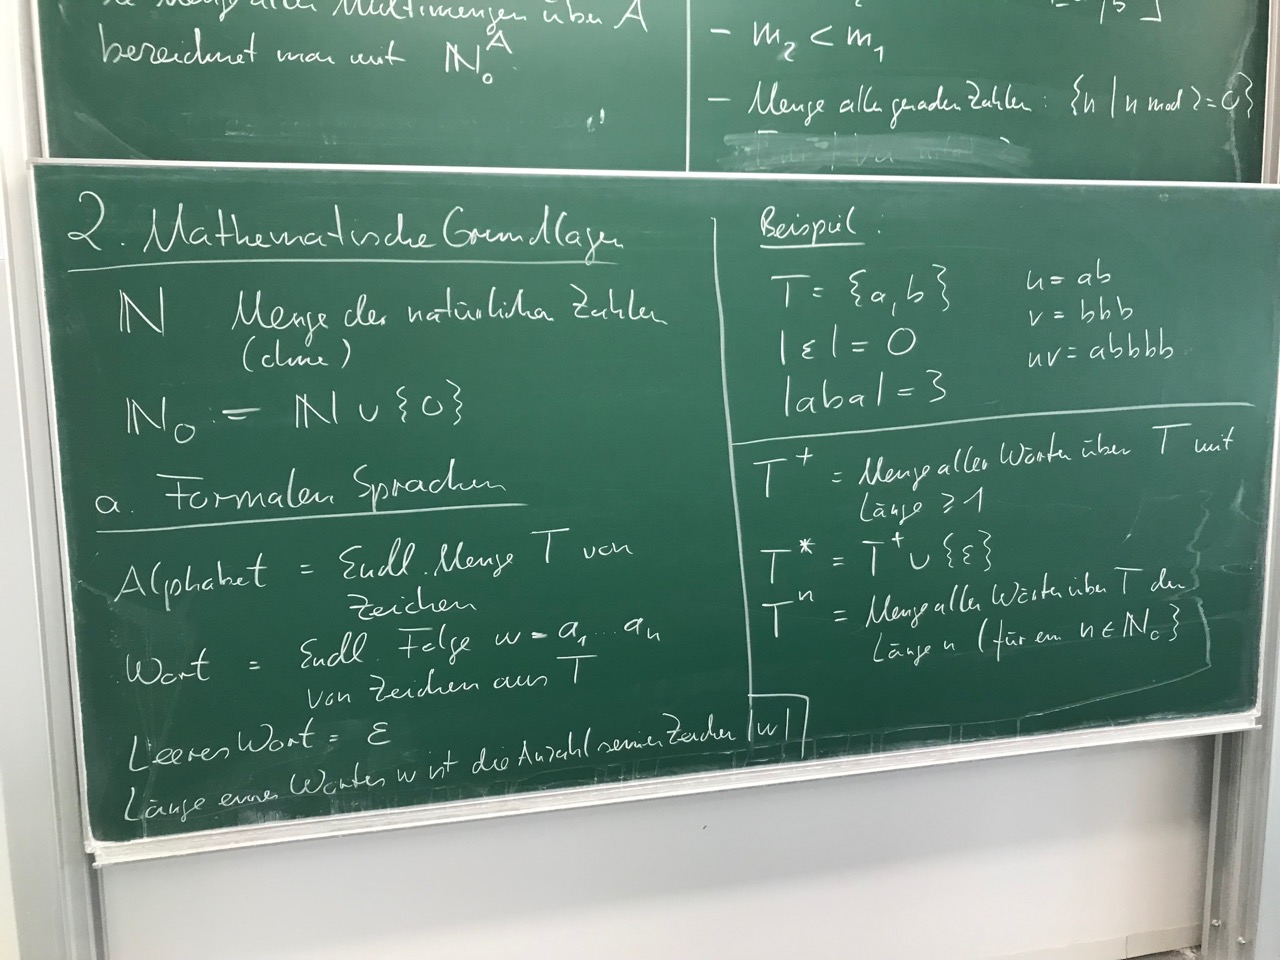 Menge aller Multimengen über A
bezeichnet man mit ℕ₀ᴬ
- m₂ < m₁
- Menge aller geraden Zahlen: {n | n mod 2 = 0}
2. Mathematische Grundlagen
ℕ Menge der natürlichen Zahlen
(ohne)
ℕ₀ := ℕ ∪ {0}
a. Formalen Sprachen
Alphabet = Endl. Menge T von
Zeichen
Wort = Endl. Folge w = a₁...aₙ
von Zeichen aus T
Leeres Wort = ε
Länge eines Wortes w ist die Anzahl seiner Zeichen |w|
Beispiel:
T = {a, b}
|ε| = 0
|aba| = 3
u = ab
v = bbb
uv = abbbb
T⁺ = Menge aller Wörter über T mit
Länge ≥ 1
T* = T⁺ ∪ {ε}
Tⁿ = Menge aller Wörter über T der
Länge n (für ein n ∈ ℕ₀}